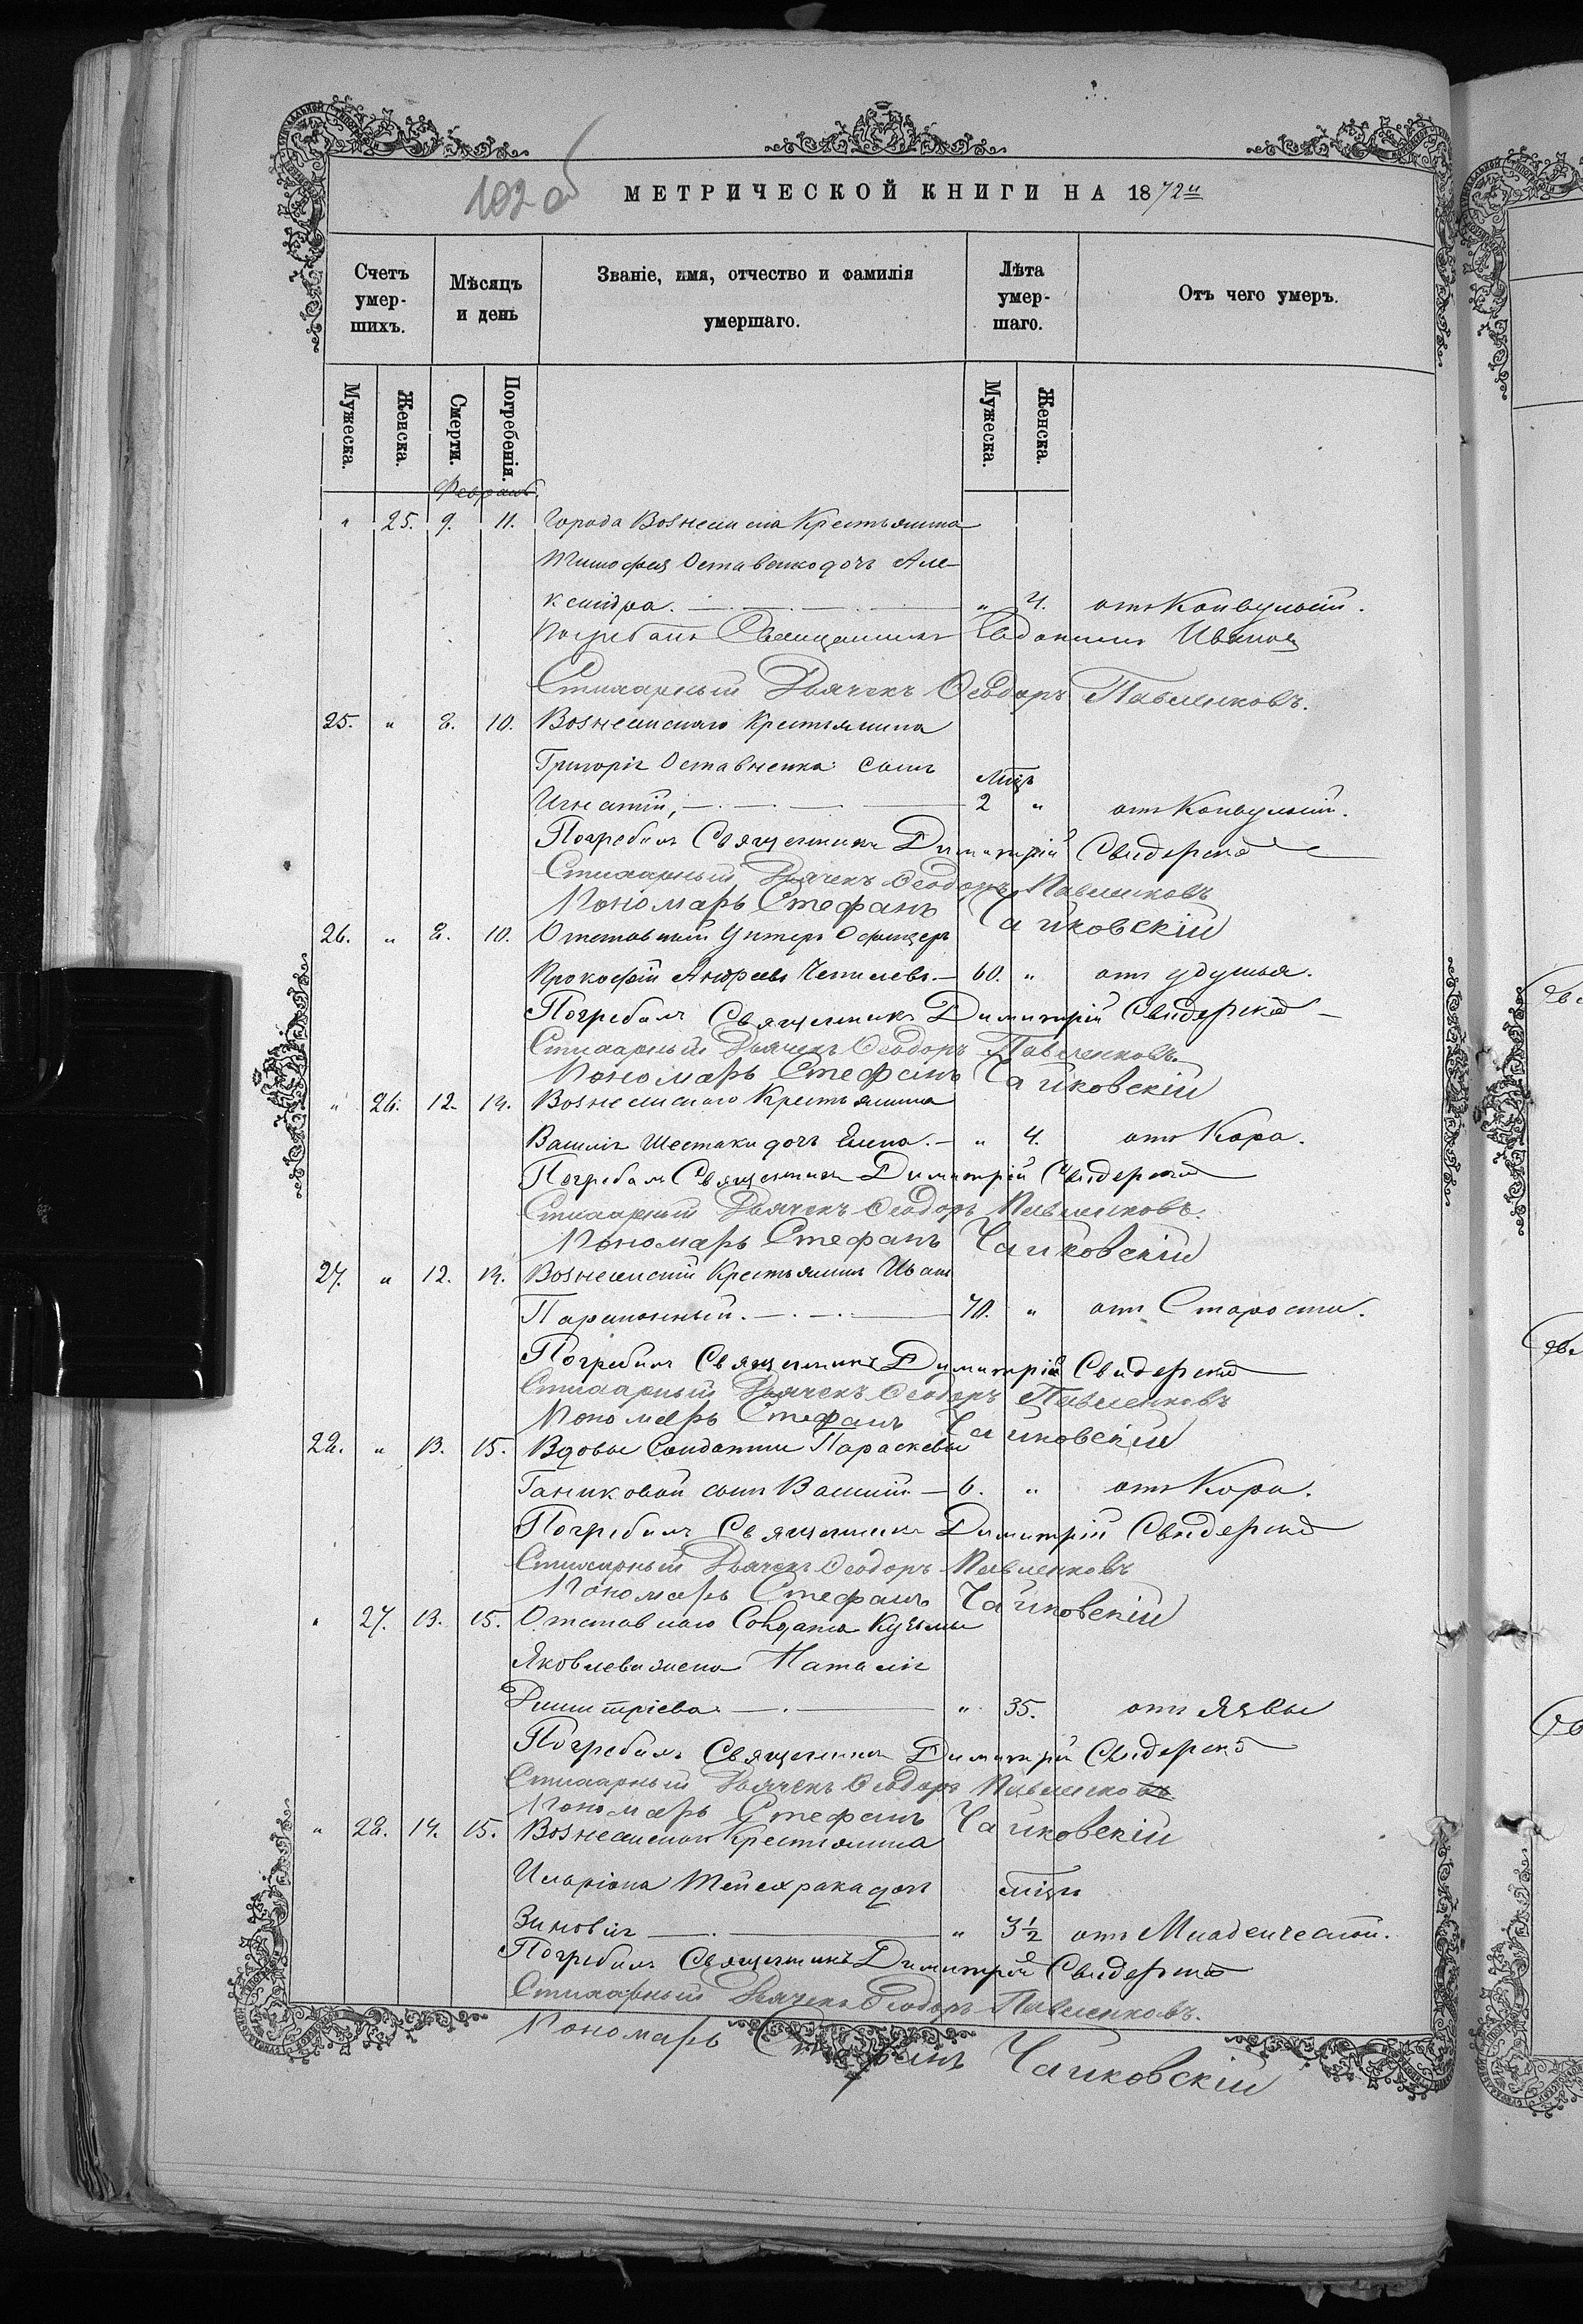 102 об
МЕТРИЧЕСКОЙ КНИГИ НА 1872й
Счетъ умер- шихъ.
Мѣсяцъ и день
Званіе, имя, отчество и фамилія умершаго.
Лѣта умер- шаго.
Отъ чего умеръ.
Мужеска. Женска. Смерти. Погребенія. Мужеска. Женска.
Февраль
" 25. 9. 11. Города Вознесенска Крестьянина
Тимофея Оставенко дочь Але-
ксандра. " 4. отъ Конвульсій.
Погребалъ Священникъ Евдокимъ Иванов
Стихарный Дьячекъ Ѳеодоръ Павленковъ.
25. " 8. 10. Вознесенскаго Крестьянина
Григорія Оставненка сынъ
Мѣц
Игнатій, 2 " отъ Конвульсій.
Погребалъ Священникъ Димитрій Свидерскій
Стихарный Дьячекъ Ѳеодоръ Павленковъ
Пономарь Стефанъ Чайковскій
26. " 8. 10. Отставной Унтеръ Офицеръ
Прокофій Андреевъ Чепилевъ. 60. " отъ удушья.
Погребалъ Священникъ Димитрій Свидерскій
Стихарный Дьячекъ Ѳеодоръ Павленковъ.
Пономарь Стефанъ Чайковскій
" 26. 12. 14. Вознесенскаго Крестьянина
Василія Шестаки дочь Елена. " 4. отъ Кора.
Погребалъ Священникъ Димитрій Свидерскій
Стихарный Дьячекъ Ѳеодоръ Павленковъ.
Пономарь Стефанъ Чайковскій
27. " 12. 14. Вознесенскій Крестьянинъ Иванъ
70. " отъ Старости.
Погребалъ Священникъ Димитрій Свидерскій
Стихарный Дьячекъ Ѳеодоръ Павленковъ
Пономарь Стефанъ Чайковскій
28. " 13. 15. Вдовы Солдатки Параскевы
Ганиковой сынъ Василій 6. " отъ Кори.
Погребалъ Священникъ Димитрій Свидерскій
Стихарный Дьячекъ Ѳеодоръ Павленковъ
Пономарь Стефанъ Чайковскій
" 27. 13. 15. Отставнаго Солдата Кузьмы
Яковлева жена Наталія
Димитріева. " 35. отъ Язвы
Погребалъ Священникъ Димитрій Свидерскій
Стихарный Дьячекъ Ѳеодоръ Павленковъ
Пономарь Стефанъ Чайковскій
" 28. 14. 15. Вознесенскаго Крестьянина
Иларіона дочь мѣцъ
Зиновія " 3½ отъ Младенческой.
Погребалъ Священникъ Димитрій Свидерскій
Стихарный Дьячекъ Ѳеодоръ Павленковъ.
Пономарь Стефанъ Чайковскій